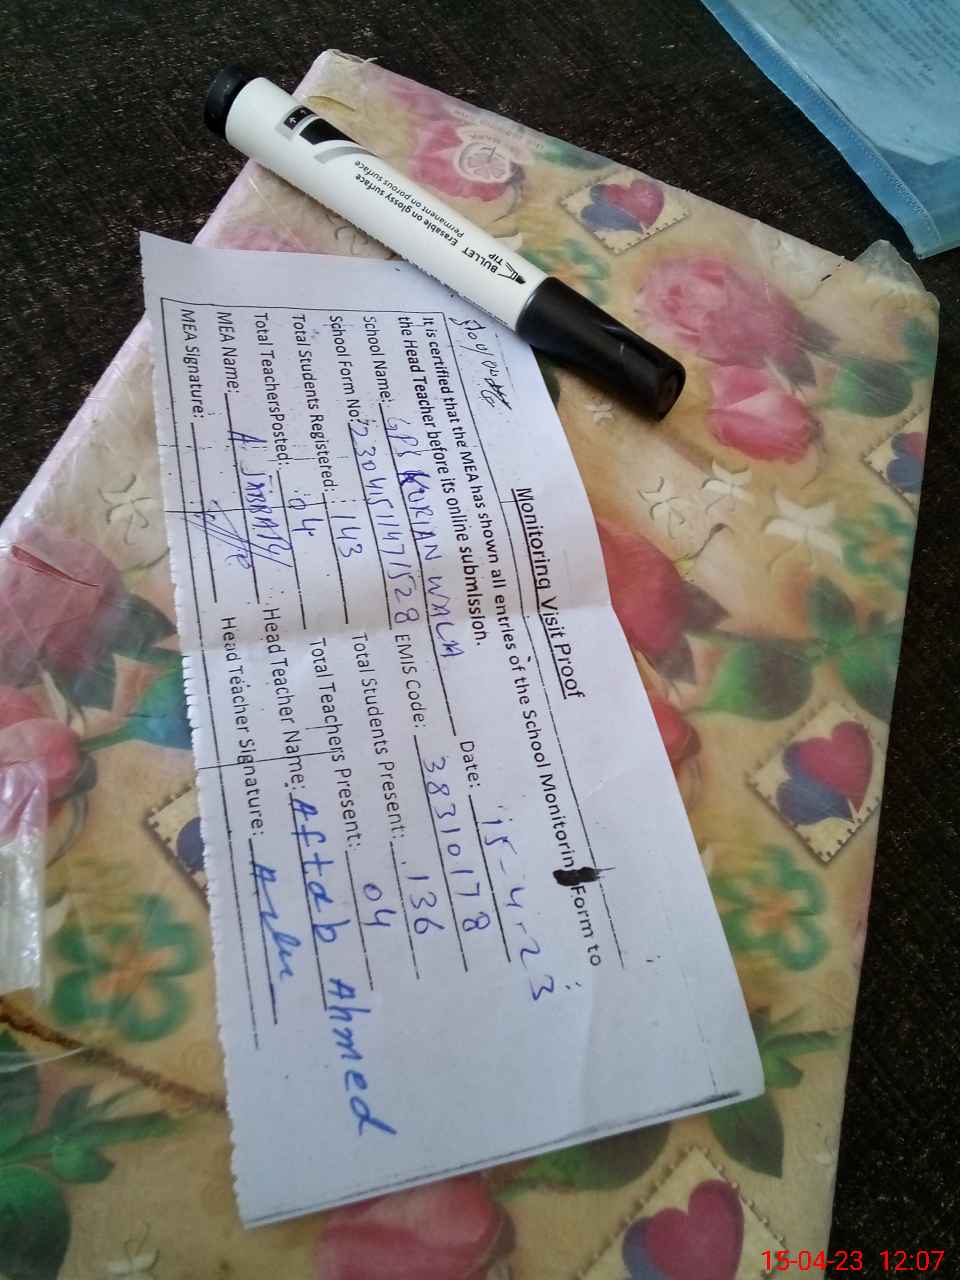 Monitoring Visit Proof
It is certified that the MEA has shown all entries of the School Monitoring Form to
the Head Teacher before its online submission. Date: 15-4-23
School Name: GPS KURIAN WALA
School Form No: 23041511471528 EMIS Code: 38310178
Total Students Registered: 143 Total Students Present: 136
Total TeachersPosted: 04 Total Teachers Present: 04
MEA Name: A. JABBAR Head Teacher Name: Aftab Ahmed
MEA Signature: Head Teacher Signature:
BULLET TIP
Erasable on glossy surface
Permanent on porous surface
15-04-23 12:07